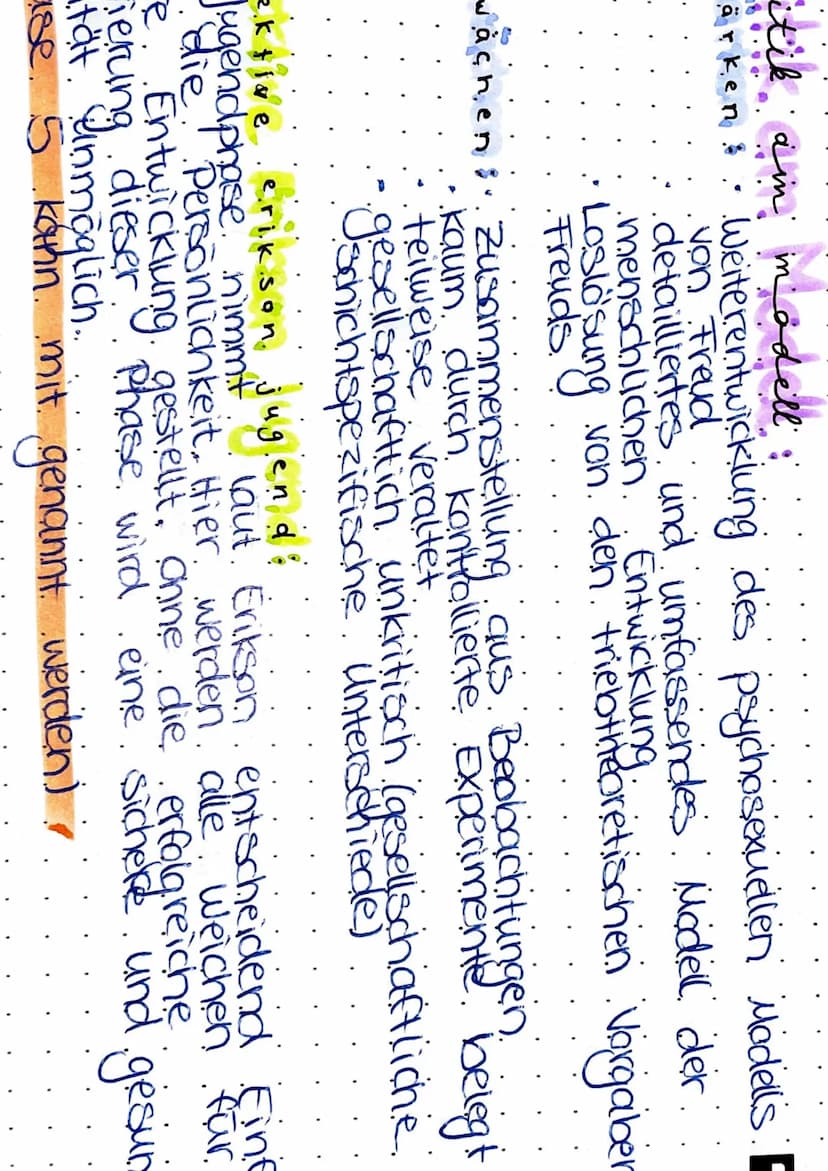 itik am Modell:
ärken: • Weiterentwicklung des psychosexuellen Modells
von Freud
• detailliertes und umfassendes Modell der
menschlichen Entwicklung
• Loslösung von den triebtheoretischen Vorgaben
Freuds
wächen: • Zusammenstellung aus Beobachtungen
kaum durch kontrollierte Experimente belegt
• teilweise veraltet
• gesellschaftlich unkritisch (gesellschaftliche
schichtspezifische Unterschiede)
ektive Erikson Jugend:
Jugendphase nimmt laut Erikson entscheidend Einf
die Persönlichkeit. Hier werden alle Weichen für
e Entwicklung gestellt. Ohne die erfolgreiche
ierung dieser Phase wird eine sichere und gesun
tität unmöglich.
ase 5 kann mit genannt werden)